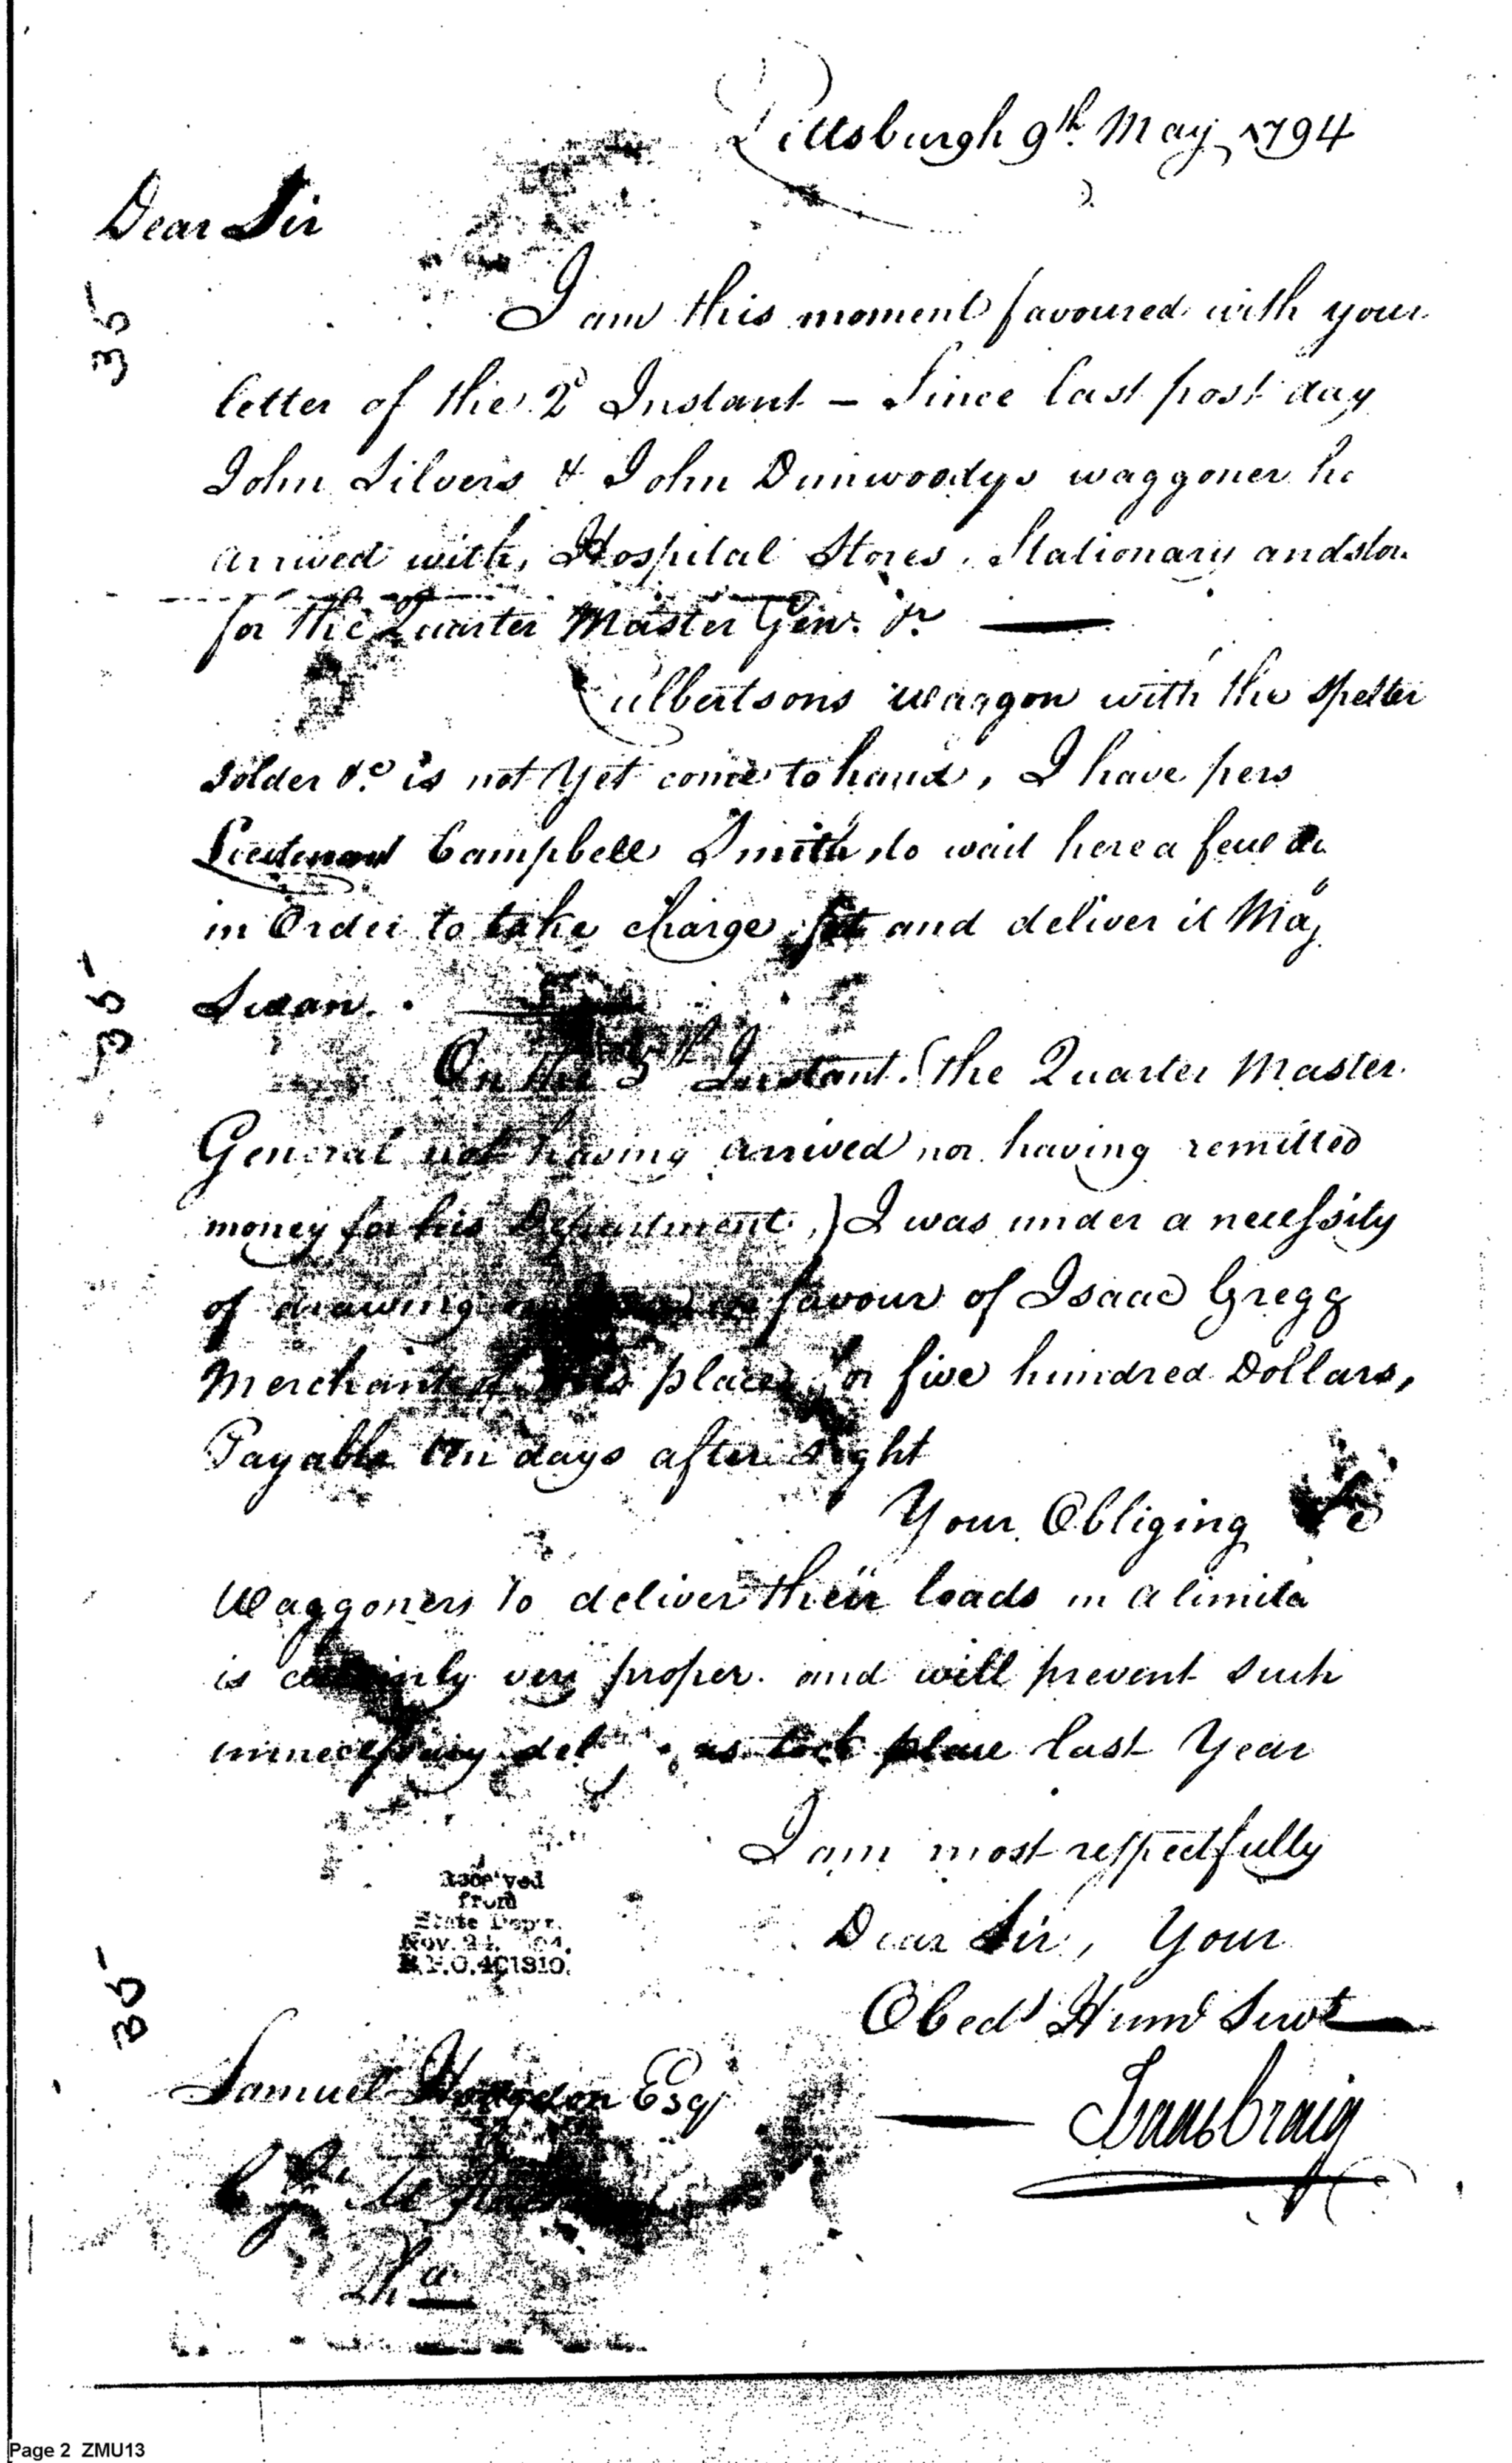 Pittsburgh 9th May 1794
Dear Sir
35
I am this moment favoured with your
letter of the 2d Instant – Since last post day
John Silvers & John Dunwoodys waggoner ha
arrived with Hospital Stores, Stationary and stor
for the Quarter Master Genl. &c
Culbertsons waggon with the spelter
solder &c is not yet come to hand, I have pers
Lieutenant Campbell Smith to wait here a few da
in Order to take charge of it and deliver it Maj
Swan.
35
On the 5th Instant (the Quarter Master
General not having arrived nor having remitted
money for his Department,) I was under a necessity
of drawing favour of Isaac Gregg
Merchant of this place for five hundred Dollars,
Payable ten days after sight
Your Obliging
Waggoners to deliver their loads in a limite
is certainly very proper and will prevent such
unnecessary del as took place last Year
I am most respectfully
Dear Sir, Your
Obedt Humb Servt
Received
from
State Dep't.
Nov. 24, 04,
R.P.O. 401810.
35
Samuel Hodgdon Esqr
Isaac Craig
Pha
Page 2 ZMU13